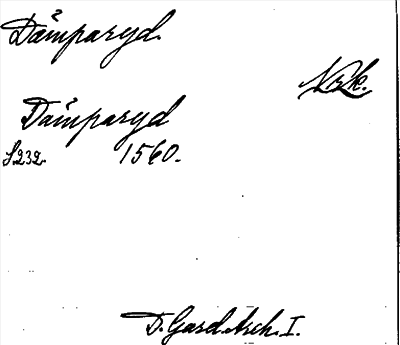 Dämparyd.
Nrk.
Dämparyd
S.232. 1560.
D. Gard. Arch. I.